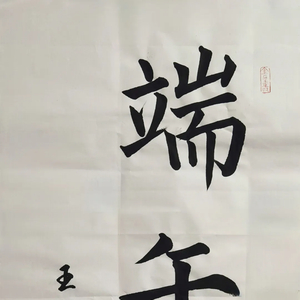 端午
王